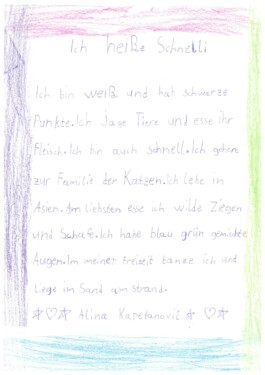 Ich heiße Schnelli
Ich bin weiß und hab schwarze
Punkte. Ich jage Tiere und esse ihr
Fleisch. Ich bin auch schnell. Ich gehöre
zur Familie der Katzen. Ich lebe in
Asien. Am liebsten esse ich wilde Ziegen
und Schafe. Ich habe blau grün gemischte
Augen. Im meiner freizeit tanze ich und
Liege im Sand am strand.
☆♡☆ Alina Kapetanović ☆♡☆